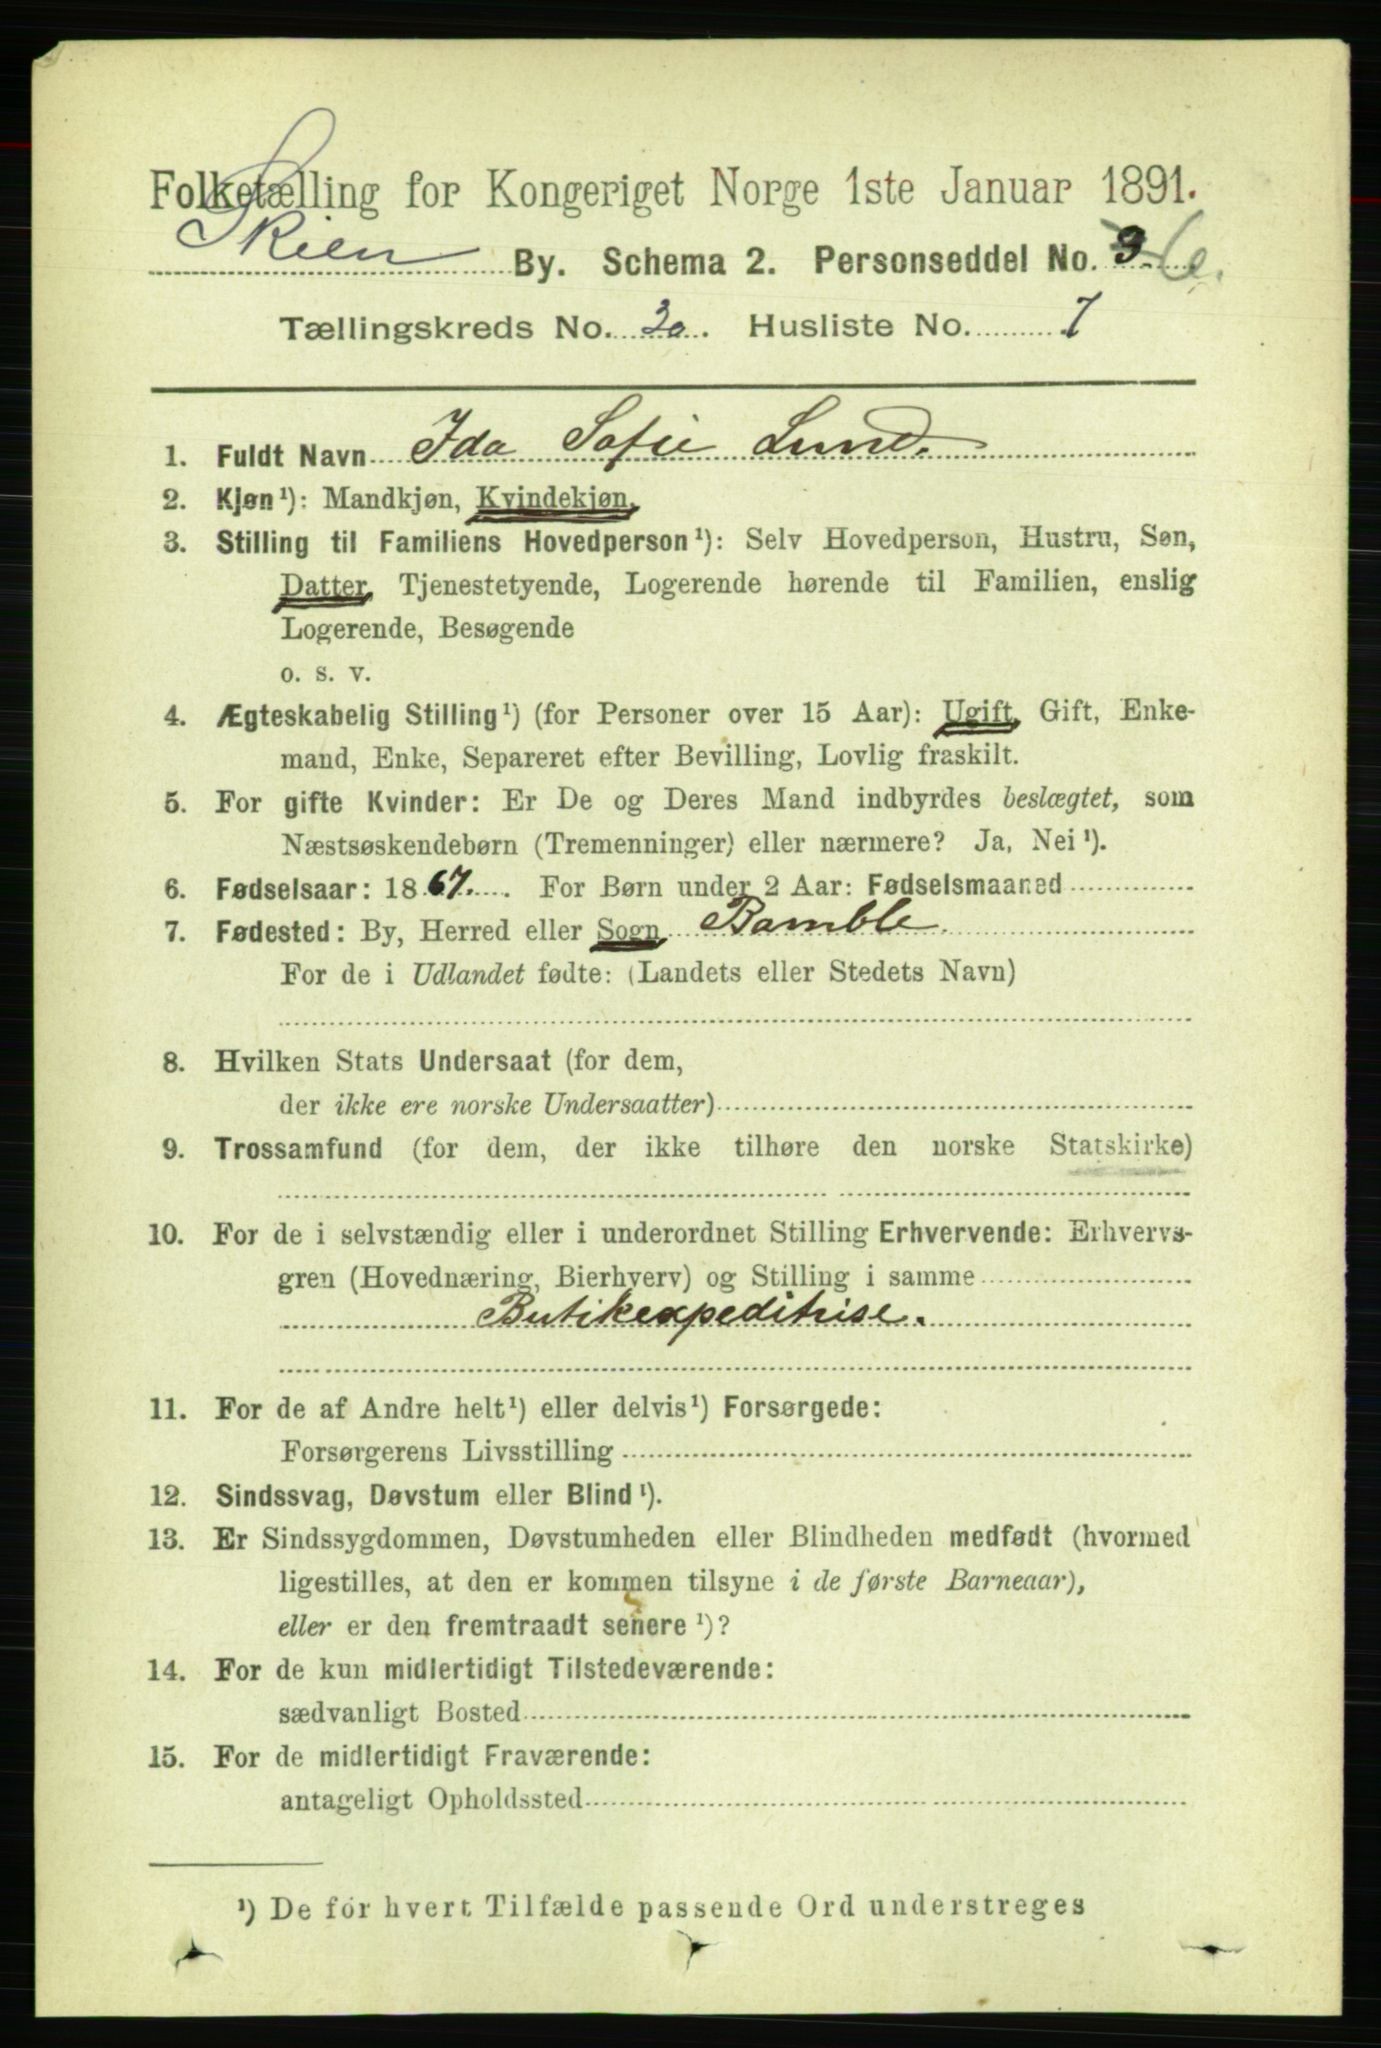 Folketælling for Kongeriget Norge 1ste Januar 1891.
Skien By. Schema 2. Personseddel No. 3 6.
Tællingskreds No. 20. Husliste No. 7
1. Fuldt Navn Ida Sofie Lund.
2. Kjøn¹): Mandkjøn, Kvindekjøn.
3. Stilling til Familiens Hovedperson¹): Selv Hovedperson, Hustru, Søn,
Datter, Tjenestetyende, Logerende hørende til Familien, enslig
Logerende, Besøgende
o. s. v.
4. Ægteskabelig Stilling¹) (for Personer over 15 Aar): Ugift, Gift, Enke-
mand, Enke, Separeret efter Bevilling, Lovlig fraskilt.
5. For gifte Kvinder: Er De og Deres Mand indbyrdes beslægtet, som
Næstsøskendebørn (Tremenninger) eller nærmere? Ja, Nei¹).
6. Fødselsaar: 1867. For Børn under 2 Aar: Fødselsmaaned
7. Fødested: By, Herred eller Sogn Bamble.
For de i Udlandet fødte: (Landets eller Stedets Navn)
8. Hvilken Stats Undersaat (for dem,
der ikke ere norske Undersaatter)
9. Trossamfund (for dem, der ikke tilhøre den norske Statskirke)
10. For de i selvstændig eller i underordnet Stilling Erhvervende: Erhvervs-
gren (Hovednæring, Bierhverv) og Stilling i samme
Butikexpeditrise.
11. For de af Andre helt¹) eller delvis¹) Forsørgede:
Forsørgerens Livsstilling
12. Sindssvag, Døvstum eller Blind¹).
13. Er Sindssygdommen, Døvstumheden eller Blindheden medfødt (hvormed
ligestilles, at den er kommen tilsyne i de første Barneaar),
eller er den fremtraadt senere¹)?
14. For de kun midlertidigt Tilstedeværende:
sædvanligt Bosted
15. For de midlertidigt Fraværende:
antageligt Opholdssted
¹) De for hvert Tilfælde passende Ord understreges